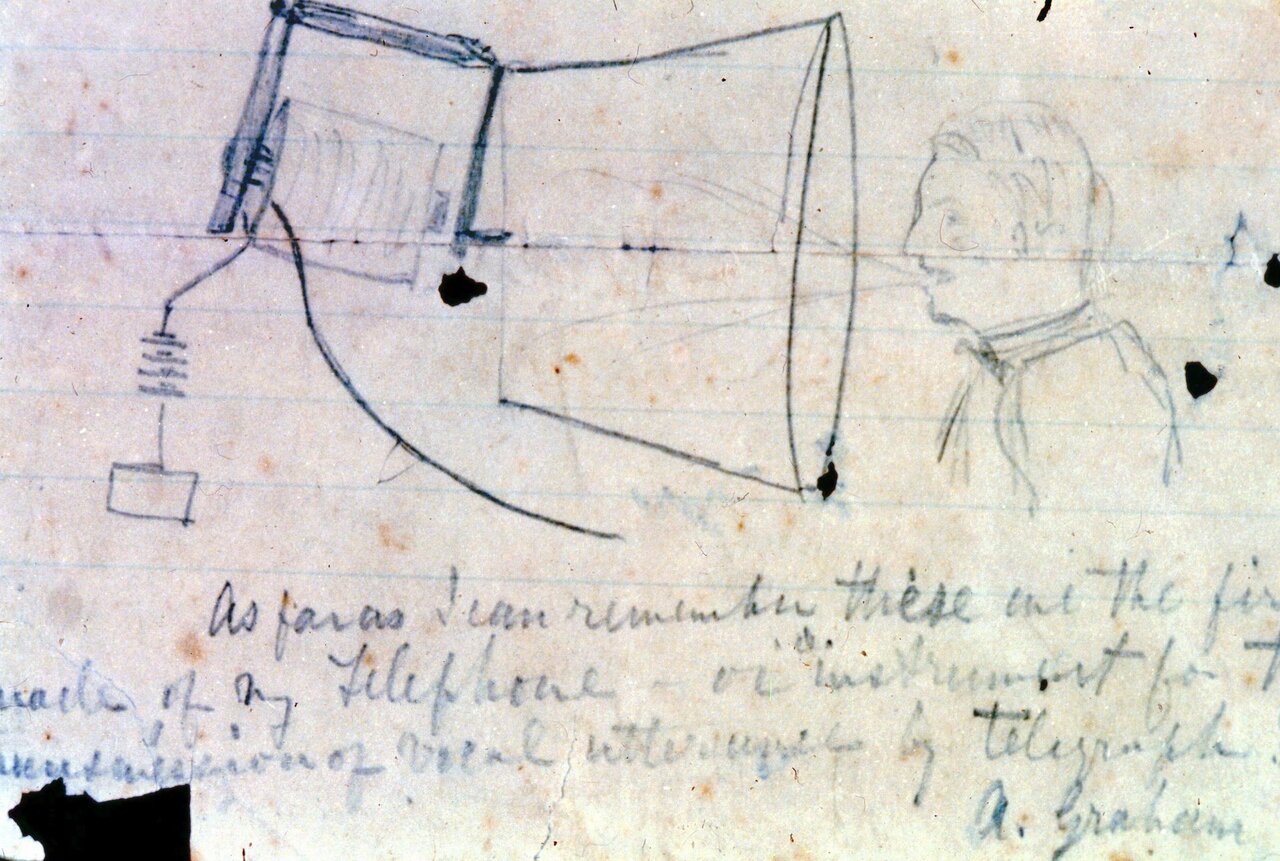 As far as I can remember these are the fir
made of my telephone - or instrument for t
ansmission of vocal utterance by telegraph.
A. Graham